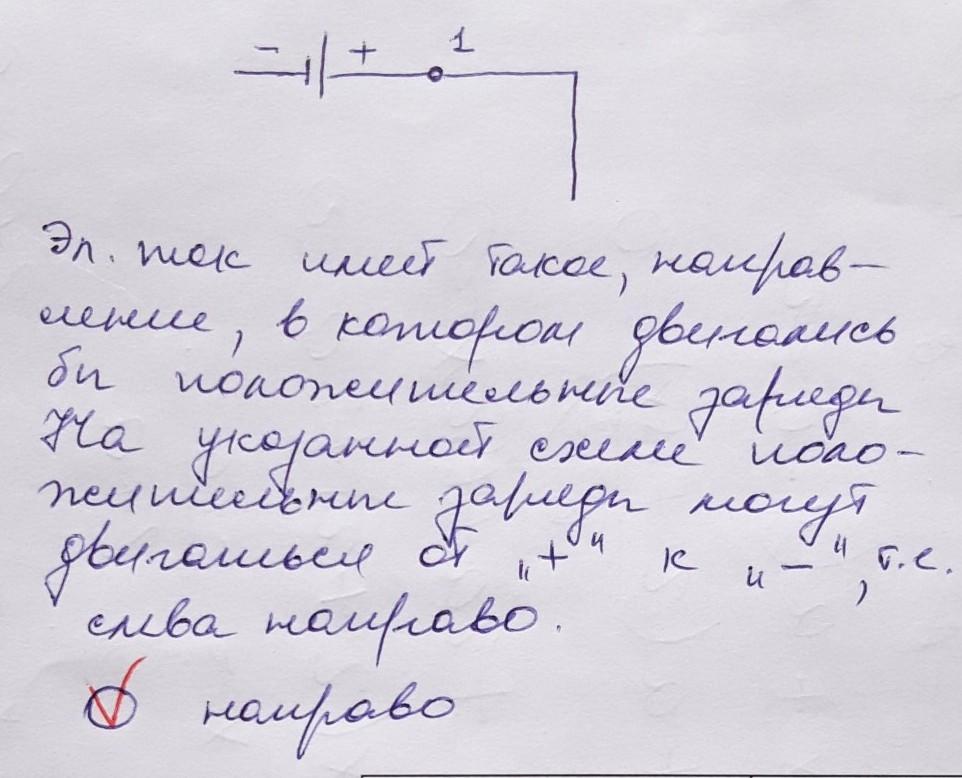 - + 1
Эл. ток имеет такое, направ-
ление, в котором двигались
бы положительные заряды
На указанной схеме поло-
жительные заряды могут
двигаться от „+" к „-", т.е.
слева направо.
направо